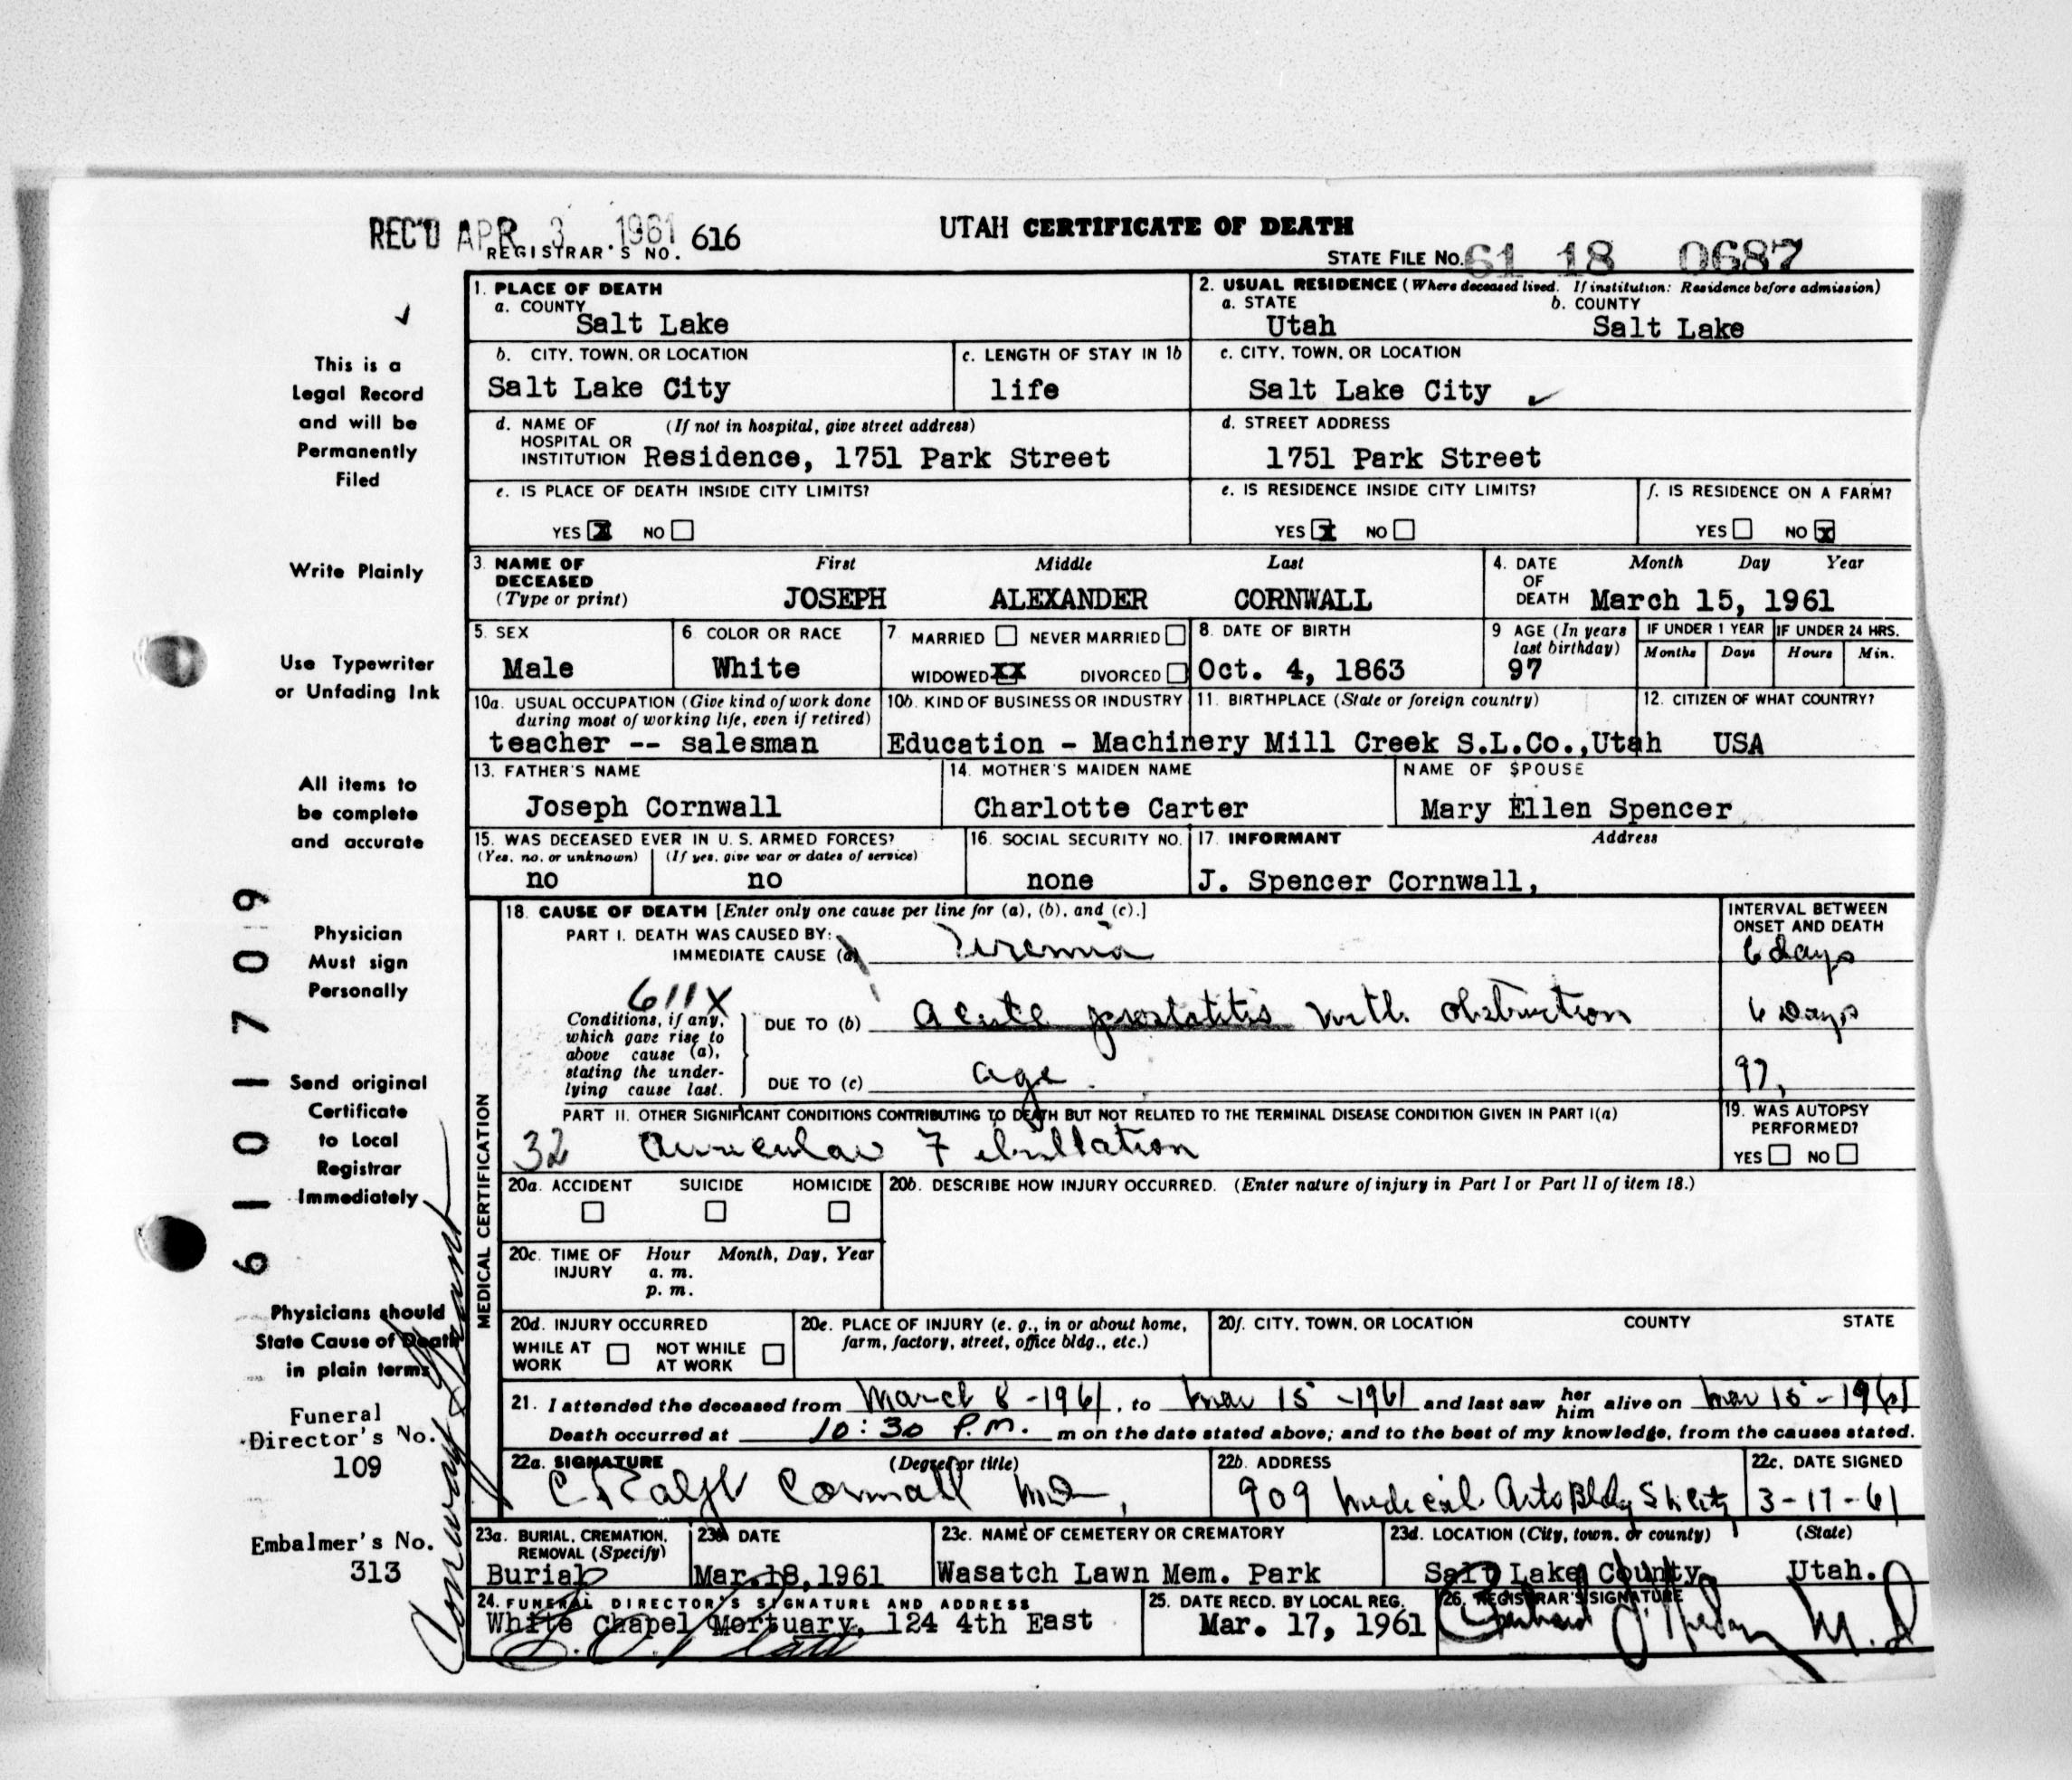 REC'D APR 3 1961
REGISTRAR'S NO. 616
UTAH CERTIFICATE OF DEATH
STATE FILE No. 61 18 0687
1. PLACE OF DEATH
a. COUNTY
Salt Lake
2. USUAL RESIDENCE (Where deceased lived. If institution: Residence before admission)
a. STATE b. COUNTY
Utah Salt Lake
b. CITY, TOWN, OR LOCATION
Salt Lake City
c. LENGTH OF STAY IN 1b
life
c. CITY, TOWN, OR LOCATION
Salt Lake City
d. NAME OF (If not in hospital, give street address)
HOSPITAL OR
INSTITUTION Residence, 1751 Park Street
d. STREET ADDRESS
1751 Park Street
e. IS PLACE OF DEATH INSIDE CITY LIMITS?
YES X NO
e. IS RESIDENCE INSIDE CITY LIMITS?
YES X NO
f. IS RESIDENCE ON A FARM?
YES NO X
3. NAME OF DECEASED
(Type or print)
First Middle Last
JOSEPH ALEXANDER CORNWALL
4. DATE OF DEATH
Month Day Year
March 15, 1961
5. SEX
Male
6. COLOR OR RACE
White
7 MARRIED NEVER MARRIED
WIDOWED XX DIVORCED
8. DATE OF BIRTH
Oct. 4, 1863
9 AGE (In years
last birthday)
97
IF UNDER 1 YEAR
Months Days
IF UNDER 24 HRS.
Hours Min.
10a. USUAL OCCUPATION (Give kind of work done
during most of working life, even if retired)
teacher -- salesman
10b. KIND OF BUSINESS OR INDUSTRY
Education - Machinery
11. BIRTHPLACE (State or foreign country)
Mill Creek S.L.Co.,Utah
12. CITIZEN OF WHAT COUNTRY?
USA
13. FATHER'S NAME
Joseph Cornwall
14. MOTHER'S MAIDEN NAME
Charlotte Carter
NAME OF SPOUSE
Mary Ellen Spencer
15. WAS DECEASED EVER IN U. S. ARMED FORCES?
(Yes, no, or unknown) (If yes, give war or dates of service)
no no
16. SOCIAL SECURITY NO.
none
17. INFORMANT Address
J. Spencer Cornwall,
MEDICAL CERTIFICATION
18. CAUSE OF DEATH [Enter only one cause per line for (a), (b), and (c).]
INTERVAL BETWEEN
ONSET AND DEATH
PART I. DEATH WAS CAUSED BY:
IMMEDIATE CAUSE (a) Uremia 6 days
611X
Conditions, if any,
which gave rise to
above cause (a),
stating the under-
lying cause last.
DUE TO (b) Acute prostatitis with obstruction 6 Days
DUE TO (c) age. 97,
PART II. OTHER SIGNIFICANT CONDITIONS CONTRIBUTING TO DEATH BUT NOT RELATED TO THE TERMINAL DISEASE CONDITION GIVEN IN PART I(a)
32 Auricular Fibrillation
19. WAS AUTOPSY
PERFORMED?
YES NO
20a. ACCIDENT SUICIDE HOMICIDE
20b. DESCRIBE HOW INJURY OCCURRED. (Enter nature of injury in Part I or Part II of item 18.)
20c. TIME OF INJURY
Hour Month, Day, Year
a. m.
p. m.
20d. INJURY OCCURRED
WHILE AT WORK NOT WHILE AT WORK
20e. PLACE OF INJURY (e. g., in or about home,
farm, factory, street, office bldg., etc.)
20f. CITY, TOWN, OR LOCATION COUNTY STATE
21. I attended the deceased from March 8 -1961, to Mar 15 -1961 and last saw her him alive on Mar 15 -1961
Death occurred at 10:30 P.M. m on the date stated above; and to the best of my knowledge, from the causes stated.
22a. SIGNATURE (Degree or title)
C Ralph Cornwall MD,
22b. ADDRESS
909 Medical Arts Bldg S L City
22c. DATE SIGNED
3-17-61
23a. BURIAL, CREMATION,
REMOVAL (Specify)
Burial
23b. DATE
Mar.18,1961
23c. NAME OF CEMETERY OR CREMATORY
Wasatch Lawn Mem. Park
23d. LOCATION (City, town, or county) (State)
Salt Lake County Utah.
24. FUNERAL DIRECTOR'S SIGNATURE AND ADDRESS
White Chapel Mortuary, 124 4th East
25. DATE RECD. BY LOCAL REG.
Mar. 17, 1961
26. REGISTRAR'S SIGNATURE
M.D
This is a
Legal Record
and will be
Permanently
Filed
Write Plainly
Use Typewriter
or Unfading Ink
All items to
be complete
and accurate
Physician
Must sign
Personally
Send original
Certificate
to Local
Registrar
Immediately
Physicians should
State Cause of Death
in plain terms
Funeral
Director's No.
109
Embalmer's No.
313
6101709